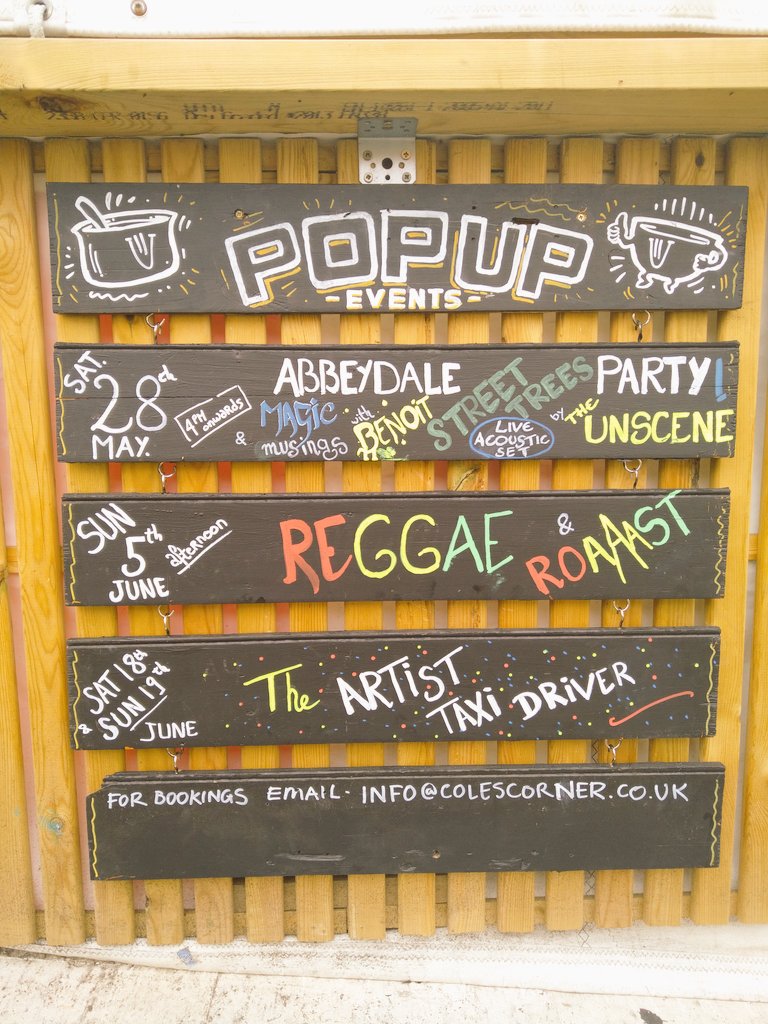 POP UP
-EVENTS-
SAT. 28th MAY.
4PM onwards
ABBEYDALE STREET TREES PARTY!
& MAGIC musings with BENOIT
LIVE ACOUSTIC SET
by THE UNSCENE
SUN 5th JUNE
afternoon
REGGAE & ROAAAST
SAT 18th
& SUN 19th
JUNE
The ARTiST TAXi DRiVER
FOR BOOKINGS EMAIL- INFO@COLESCORNER.CO.UK